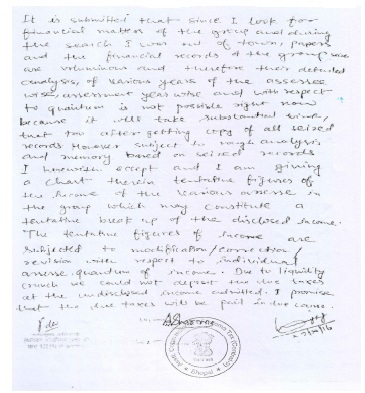 It is submitted that since I look for
financial matters of the group and during
the search I was out of town, papers
and the financial records of the group
are voluminous and therefore their detailed
analysis, of various years of the assessee
wise, assessment year wise and with respect
to quantum is not possible right now
because it will take substantial time,
that too after getting copy of all seized
records However subject to rough analysis
and memory based on seized records
I herewith accept and I am giving
a chart therein tentative figures of
the income of the various assesse in
the group which may constitute a
tentative break up of the disclosed income.
The tentative figures of income are
subjected to modification/correction/
revision with respect to individual
assesse quantum of income. Due to liquidity
crunch we could not deposit the due taxes
at the undisclosed income admitted. I promise
that the due taxes will be paid in due course.
Bhopal